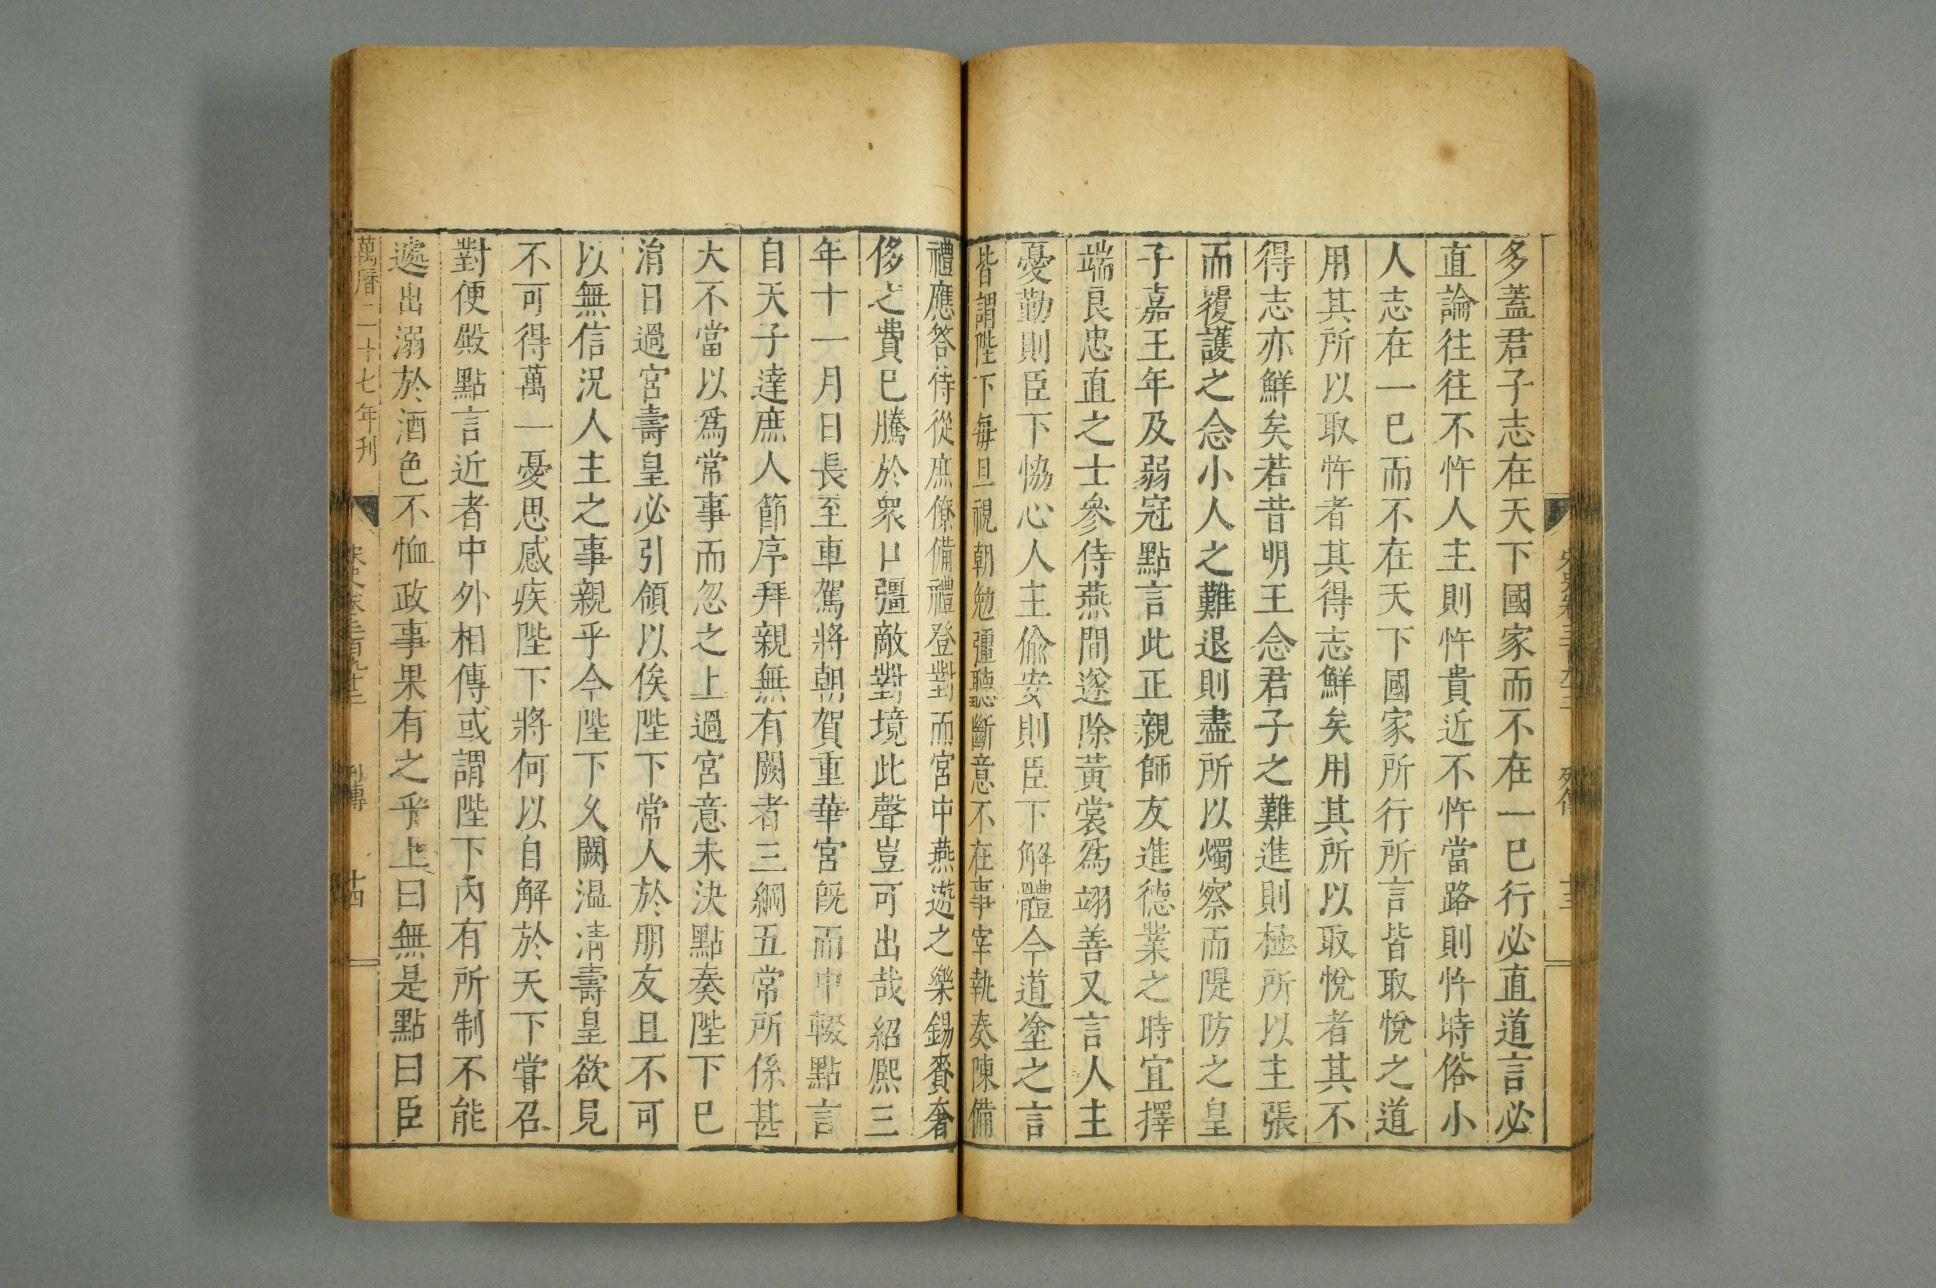 多蓋君子志在天下國家而不在一已行必直道言必
直論往往不忤人主則忤貴近不忤當路則忤時俗小
人志在一已而不在天下國家所行所言皆取悅之道
用其所以取忤者其得志鮮矣用其所以取悅者其不
得志亦鮮矣若昔明王念君子之難進則極所以主張
而覆護之念小人之難退則盡所以燭察而隄防之皇
子嘉王年及弱冠點言此正親師友進德業之時宜擇
端良忠直之士參侍燕閒遂除黃裳爲翊善又言人主
憂勤則臣下恊心人主偷安則臣下解體今道塗之言
皆謂陛下每旦視朝勉彊聽斷意不在事宰執奏陳備
禮應答侍從庶僚備禮登對而宮中燕遊之樂錫賚奢
侈之費已騰於衆口彊敵對境此聲豈可出哉紹熙三
年十一月日長至車駕將朝賀重華宮旣而中輟點言
自天子達庶人節序拜親無有闕者三綱五常所係甚
大不當以爲常事而忽之上過宮意未決點奏陛下已
涓日過宮壽皇必引領以俟陛下常人於朋友且不可
以無信況人主之事親乎今陛下久闕溫凊壽皇欲見
不可得萬一憂思感疾陛下將何以自解於天下嘗召
對便殿點言近者中外相傳或謂陛下內有所制不能
遽出溺於酒色不恤政事果有之乎上曰無是點曰臣
萬曆二十七年刊
宋史卷三百九十三 列傳 十四